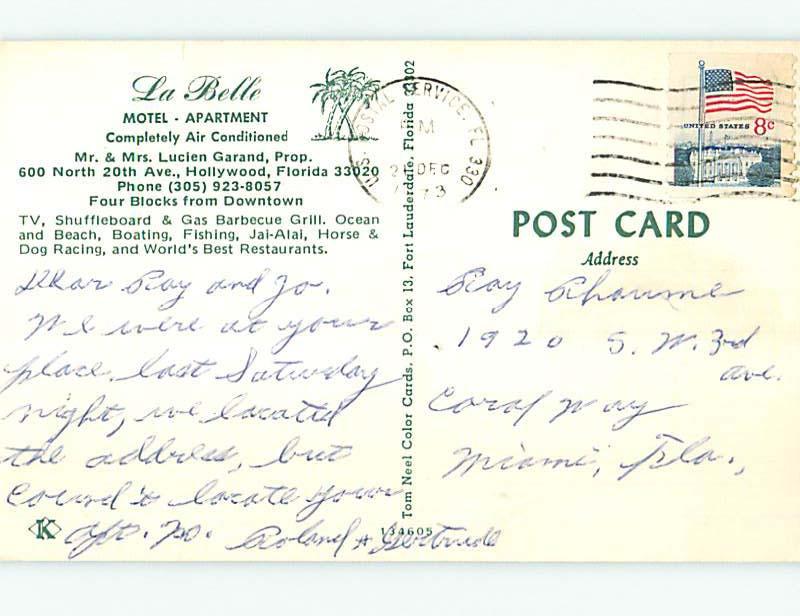 La Belle
MOTEL - APARTMENT
Completely Air Conditioned
Mr. & Mrs. Lucien Garand, Prop.
600 North 20th Ave., Hollywood, Florida 33020
Phone (305) 923-8057
Four Blocks from Downtown
TV, Shuffleboard & Gas Barbecue Grill. Ocean
and Beach, Boating, Fishing, Jai-Alai, Horse &
Dog Racing, and World's Best Restaurants.
Dear Ray and Jo.
We were at your
place last Saturday
night, we located
the address, but
could't locate your
Apt. No. Roland & Gertrude
K
134605
Tom Neel Color Cards, P.O. Box 13, Fort Lauderdale, Florida 33302
U.S. POSTAL SERVICE, FL 330
PM
DEC
1973
UNITED STATES 8c
POST CARD
Address
Ray Rhaume
1920 S. W. 3rd
ave.
Coral Way
Miami, Fla.,